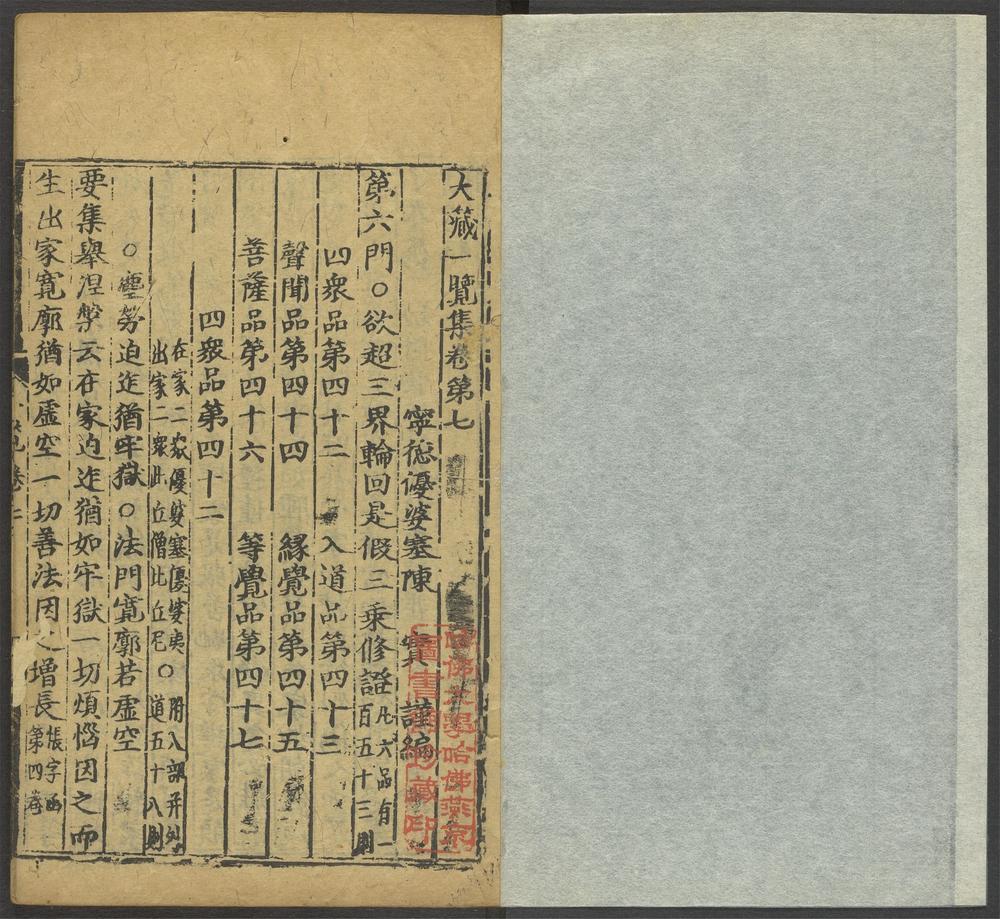 大藏一覽集卷第七
寧德優婆塞陳 實 謹編
第六門○欲超三界輪回是假三乘修證凡六品有一百五十三則
四衆品第四十二 入道品第四十三
聲聞品第四十四 緣覺品第四十五
菩薩品第四十六 等覺品第四十七
四衆品第四十二
在家二衆優婆塞優婆夷○附八部并外
出家二衆比丘僧比丘尼 道五十八則
○塵勞迫迮猶牢獄○法門寬廓若虛空
要集舉涅槃云在家迫迮猶如牢獄一切煩惱因之而
生出家寬廓猶如虛空一切善法因之增長張字函第四卷
哈佛大學哈佛燕京
圖書館珍藏印